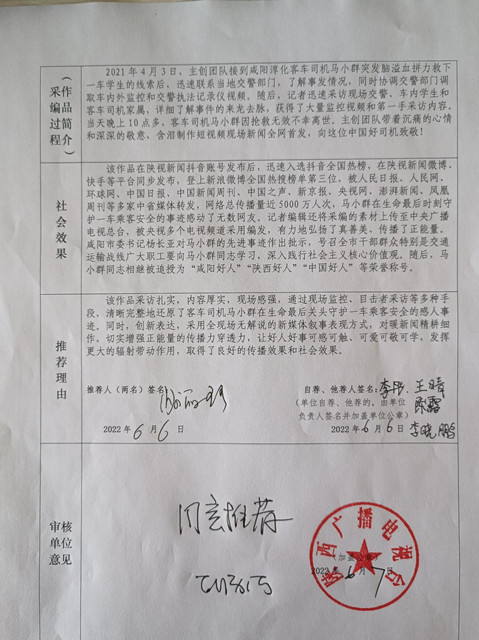 （作品简介）
采编过程
2021年4月3日，主创团队接到咸阳淳化客车司机马小群突发脑溢血拼力救下
一车学生的线索后，迅速联系当地交警部门，了解事发情况，同时协调交警部门调
取车内外监控和交警执法记录仪视频。随后，记者迅速采访现场交警、车内学生和
客车司机家属，详细了解事件的来龙去脉，获得了大量监控视频和第一手采访内容。
当天晚上10点多，客车司机马小群因抢救无效不幸离世。主创团队带着沉痛的心情
和深深的敬意，含泪制作短视频现场新闻全网首发，向这位中国好司机致敬！
社会效果
该作品在陕视新闻抖音账号发布后，迅速入选抖音全国热榜，在陕视新闻微博、
快手等平台同步发布，登上新浪微博全国热搜榜单第三位，被人民日报、人民网、
环球网、中国日报、中国新闻周刊、中国之声、新京报、央视网、澎湃新闻、凤凰
周刊等多家中省媒体转发，网络总传播量近5000万人次，马小群在生命最后时刻守
护一车乘客安全的事迹感动了无数网友。记者编辑还将采编的素材上传至中央广播
电视总台，被央视多个电视频道采用编发，有力地弘扬了真善美，传播了正能量。
咸阳市委书记杨长亚对马小群的先进事迹作出批示，号召全市干部群众特别是交通
运输战线广大职工要向马小群同志学习，深入践行社会主义核心价值观。随后，马
小群同志相继被追授为“咸阳好人”“陕西好人”“中国好人”等荣誉称号。
推荐理由
该作品采访扎实，内容厚实，现场感强，通过现场监控、目击者采访等多种手
段，清晰完整地还原了客车司机马小群在生命最后关头守护一车乘客安全的感人事
迹。同时，创新表达，采用全现场无解说的新媒体叙事表现方式，对暖新闻精耕细
作，切实增强正能量的传播力穿透力，让好人好事可感可触、可爱可敬可学，发挥
更大的辐射带动作用，取得了良好的传播效果和社会效果。
推荐人（两名）签名：
自荐、他荐人签名：李彤、王晴
（单位自荐、他荐的，由单位
负责人签名并加盖单位公章）
李晓鹏
2022年6月6日
2022年6月6日
审核单位意见
同意推荐
陕西广播电视台
2022年6月7日